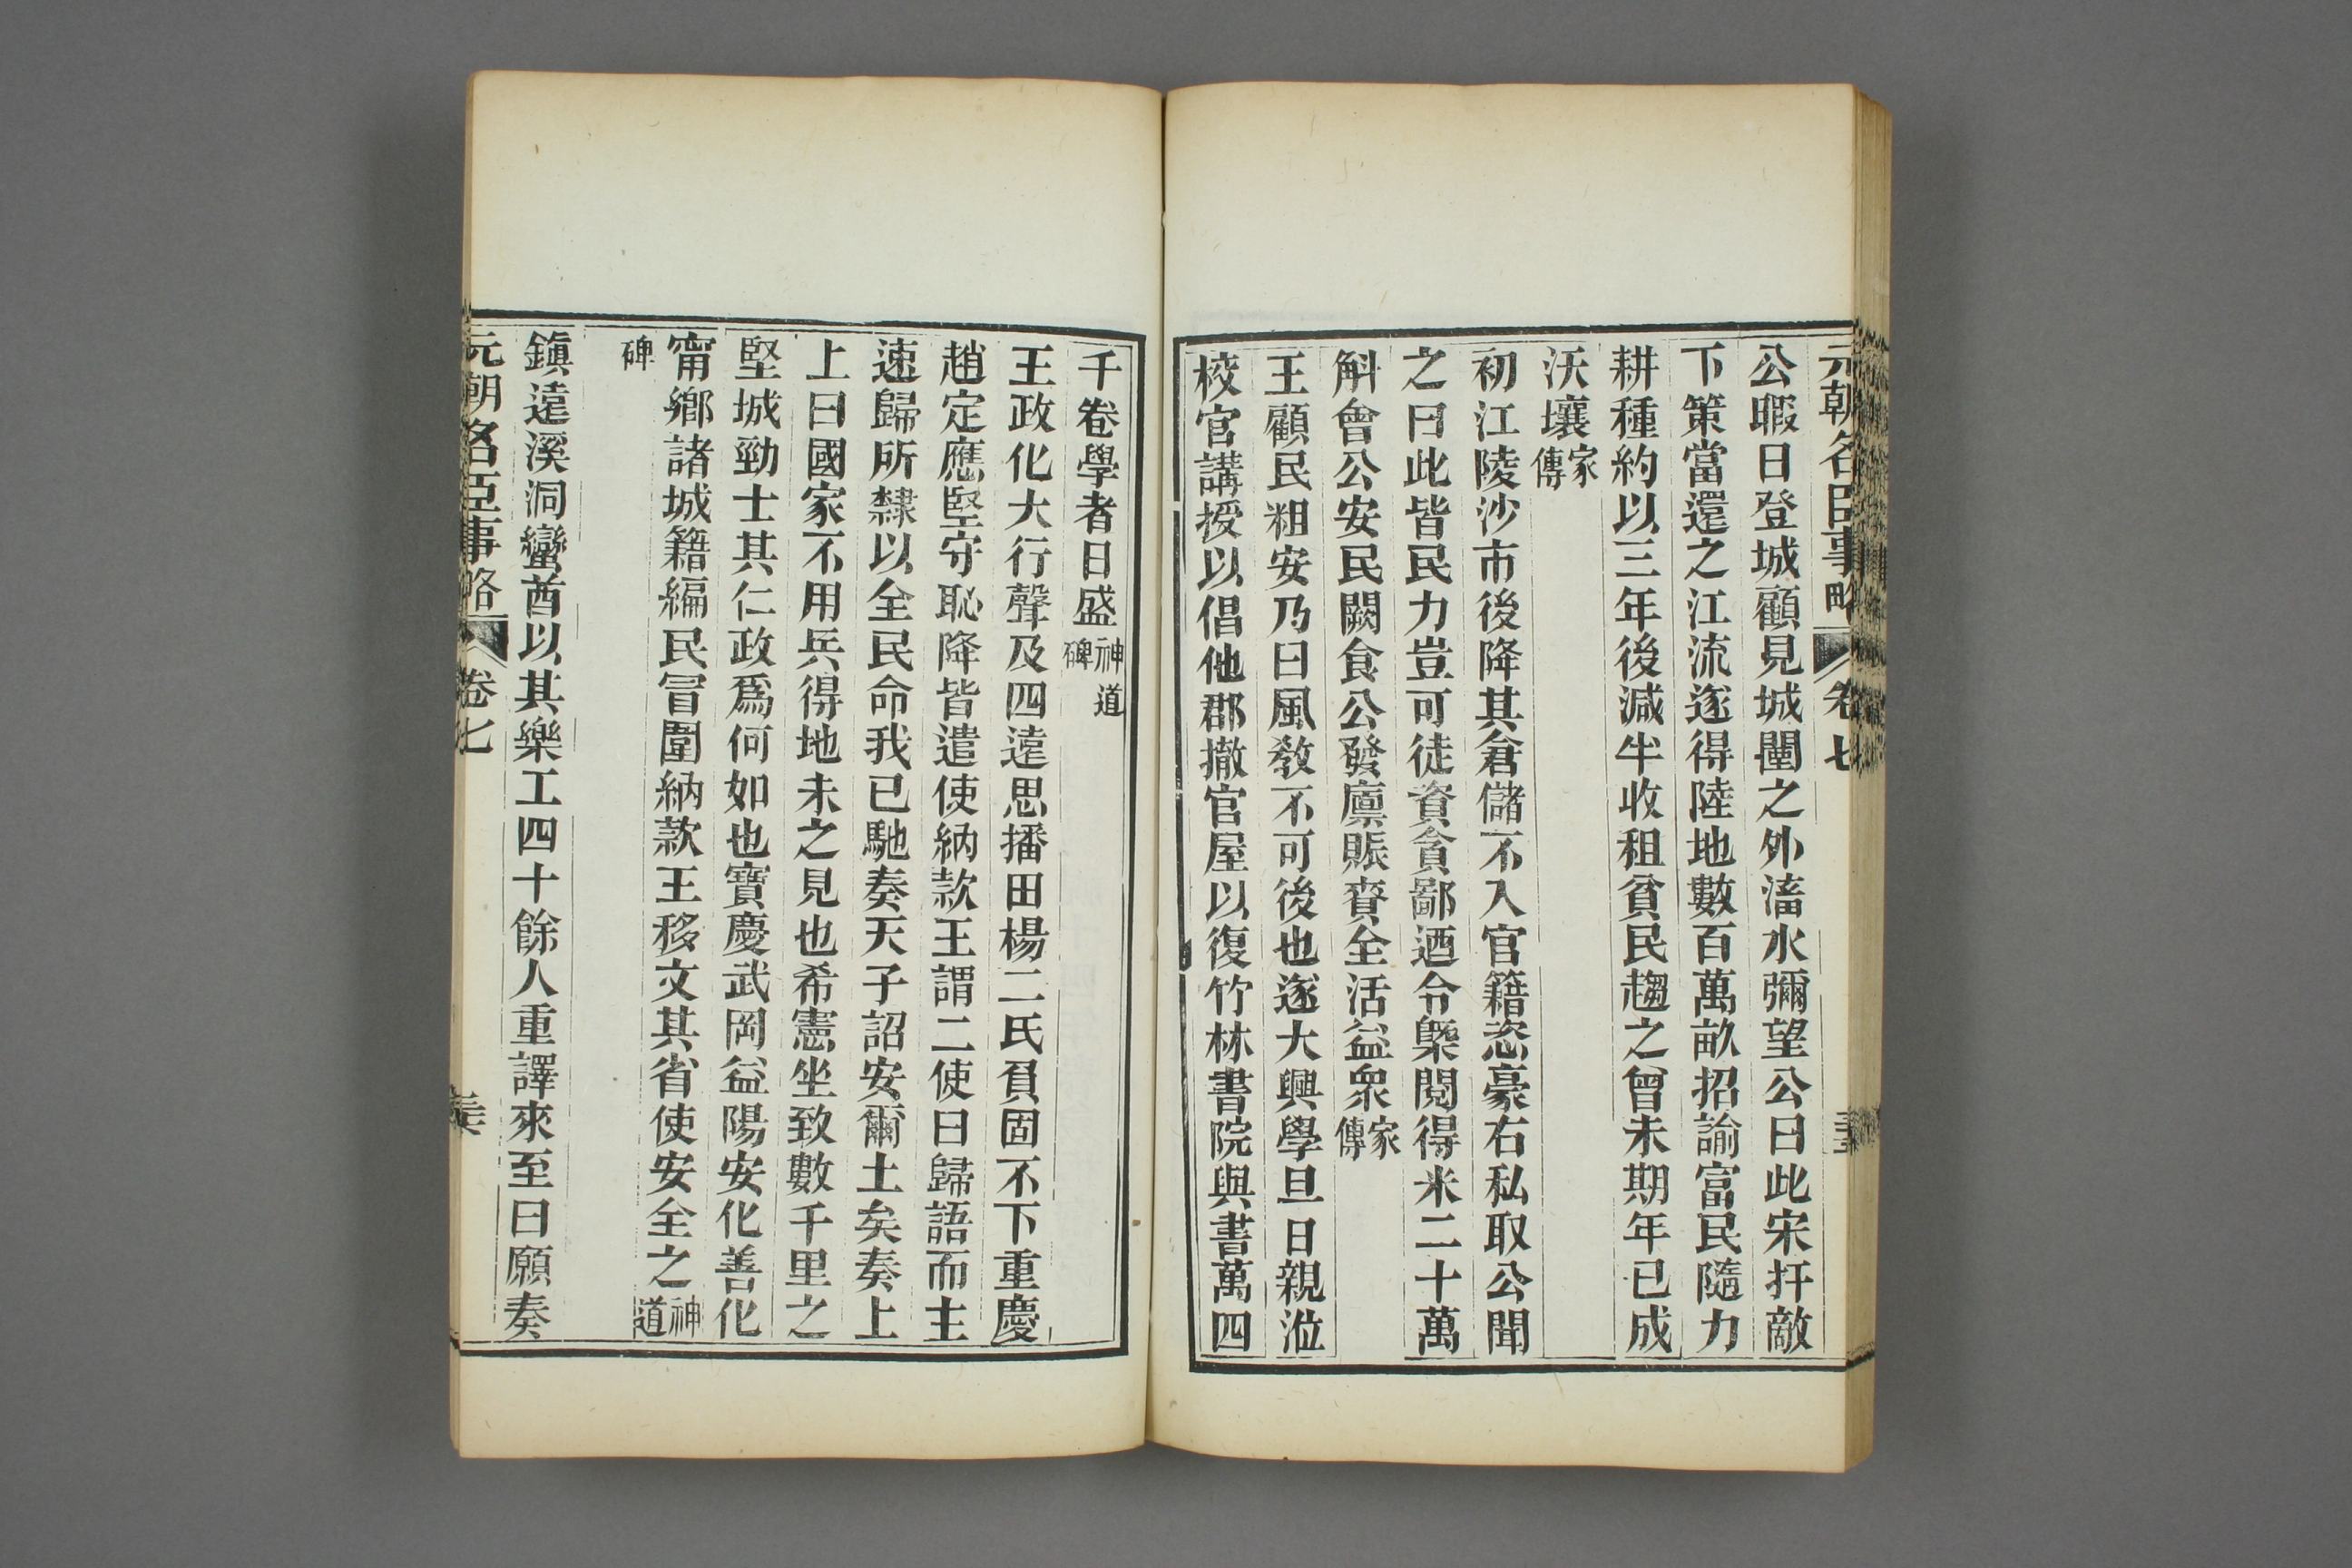 元朝名臣事略 卷七 三十五
公暇日登城顧見城闉之外潴水彌望公曰此宋扞敵
下策當還之江流遂得陸地數百萬畝招諭富民隨力
耕種約以三年後減半收租貧民趨之曾未期年已成
沃壤家傳
初江陵沙市後降其倉儲不入官籍恣豪右私取公聞
之曰此皆民力豈可徒資貪鄙迺令槩閱得米二十萬
斛會公安民闕食公發廩賑賚全活益衆家傳
王顧民粗安乃曰風敎不可後也遂大興學旦日親涖
校官講授以倡他郡撤官屋以復竹林書院與書萬四
千卷學者日盛神道碑
王政化大行聲及四遠思播田楊二氏負固不下重慶
趙定應堅守恥降皆遣使納款王謂二使曰歸語而主
速歸所隸以全民命我已馳奏天子詔安爾土矣奏上
上曰國家不用兵得地未之見也希憲坐致數千里之
堅城勁士其仁政爲何如也寶慶武岡益陽安化善化
甯鄉諸城籍編民冒圍納款王移文其省使安全之神道
碑
鎭遠溪洞蠻酋以其樂工四十餘人重譯來至曰願奏
元朝名臣事略 卷七 三十六